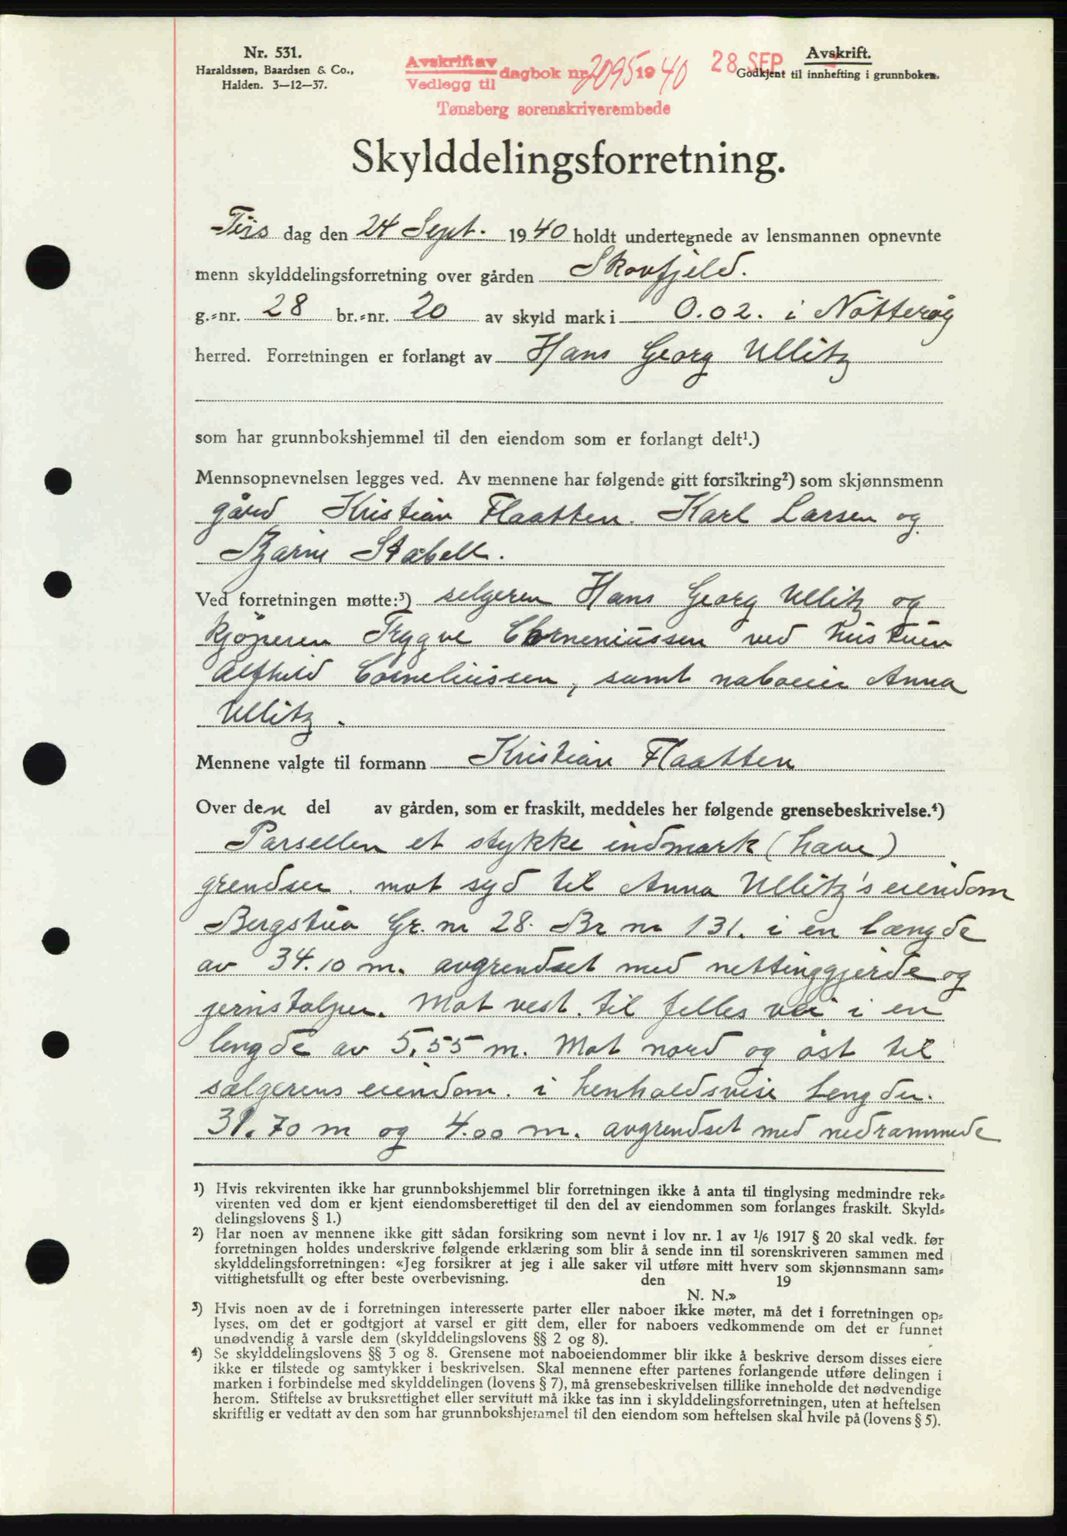 Nr. 531.
Haraldssøn, Baardsen & Co.,
Halden. 3—12—37.
Avskrift av
Vedlegg til
dagbok nr. 2095 1940
Tønsberg sorenskriverembede
28 SEP
Avskrift.
Godkjent til innhefting i grunnboken.
Skylddelingsforretning.
Tirs dag den 24 Sept. 1940 holdt undertegnede av lensmannen opnevnte
menn skylddelingsforretning over gården Skovfjeld.
g.-nr. 28 br.-nr. 20 av skyld mark i 0.02. i Nøtterøy
herred. Forretningen er forlangt av Hans Georg Ullitz
som har grunnbokshjemmel til den eiendom som er forlangt delt¹.)
Mennsopnevnelsen legges ved. Av mennene har følgende gitt forsikring²) som skjønnsmenn
gårbr Kristian Flaatten. Karl Larsen og
Bjarne Stabell.
Ved forretningen møtte:³) selgeren Hans Georg Ullitz og
kjøperen Trygve Corneniussen ved hustruen
Alfhild Corneliussen, samt naboeier Anna
Ullitz.
Mennene valgte til formann Kristian Flaatten
Over den del av gården, som er fraskilt, meddeles her følgende grensebeskrivelse.⁴)
Parsellen et stykke indmark (have)
grendser. mot syd til Anna Ullitz's eiendom
Bergstua Gr. nr 28. Br nr 131. i en længde
av 34.10 m. avgrendset med nettinggjerde og
jernstolper. Mot vest. til felles vei i en
lengde av 5,55 m. Mot nord og øst til
sælgerens eiendom. i henholdsvise lengder.
31.70 m og 4.00 m. avgrendset med nedrammede
¹) Hvis rekvirenten ikke har grunnbokshjemmel blir forretningen ikke å anta til tinglysing medmindre rek-
virenten ved dom er kjent eiendomsberettiget til den del av eiendommen som forlanges fraskilt. Skyld-
delingslovens § 1.)
²) Har noen av mennene ikke gitt sådan forsikring som nevnt i lov nr. 1 av 1/6 1917 § 20 skal vedk. før
forretningen holdes underskrive følgende erklæring som blir å sende inn til sorenskriveren sammen med
skylddelingsforretningen: «Jeg forsikrer at jeg i alle saker vil utføre mitt hverv som skjønnsmann sam-
vittighetsfullt og efter beste overbevisning. den 19
N. N.»
³) Hvis noen av de i forretningen interesserte parter eller naboer ikke møter, må det i forretningen op-
lyses, om det er godtgjort at varsel er gitt dem, eller for naboers vedkommende om det er funnet
unødvendig å varsle dem (skylddelingslovens §§ 2 og 8).
⁴) Se skylddelingslovens §§ 3 og 8. Grensene mot naboeiendommer blir ikke å beskrive dersom disses eiere
ikke er tilstede og samtykker i beskrivelsen. Skal mennene efter partenes forlangende utføre delingen i
marken i forbindelse med skylddelingen (lovens § 7), må grensebeskrivelsen tillike inneholde det nødvendige
herom. Stiftelse av bruksrettighet eller servitutt må ikke tas inn i skylddelingsforretningen, uten at heftelsen
skriftlig er vedtatt av den som har grunnbokshjemmel til den eiendom som heftelsen skal hvile på (lovens § 5).